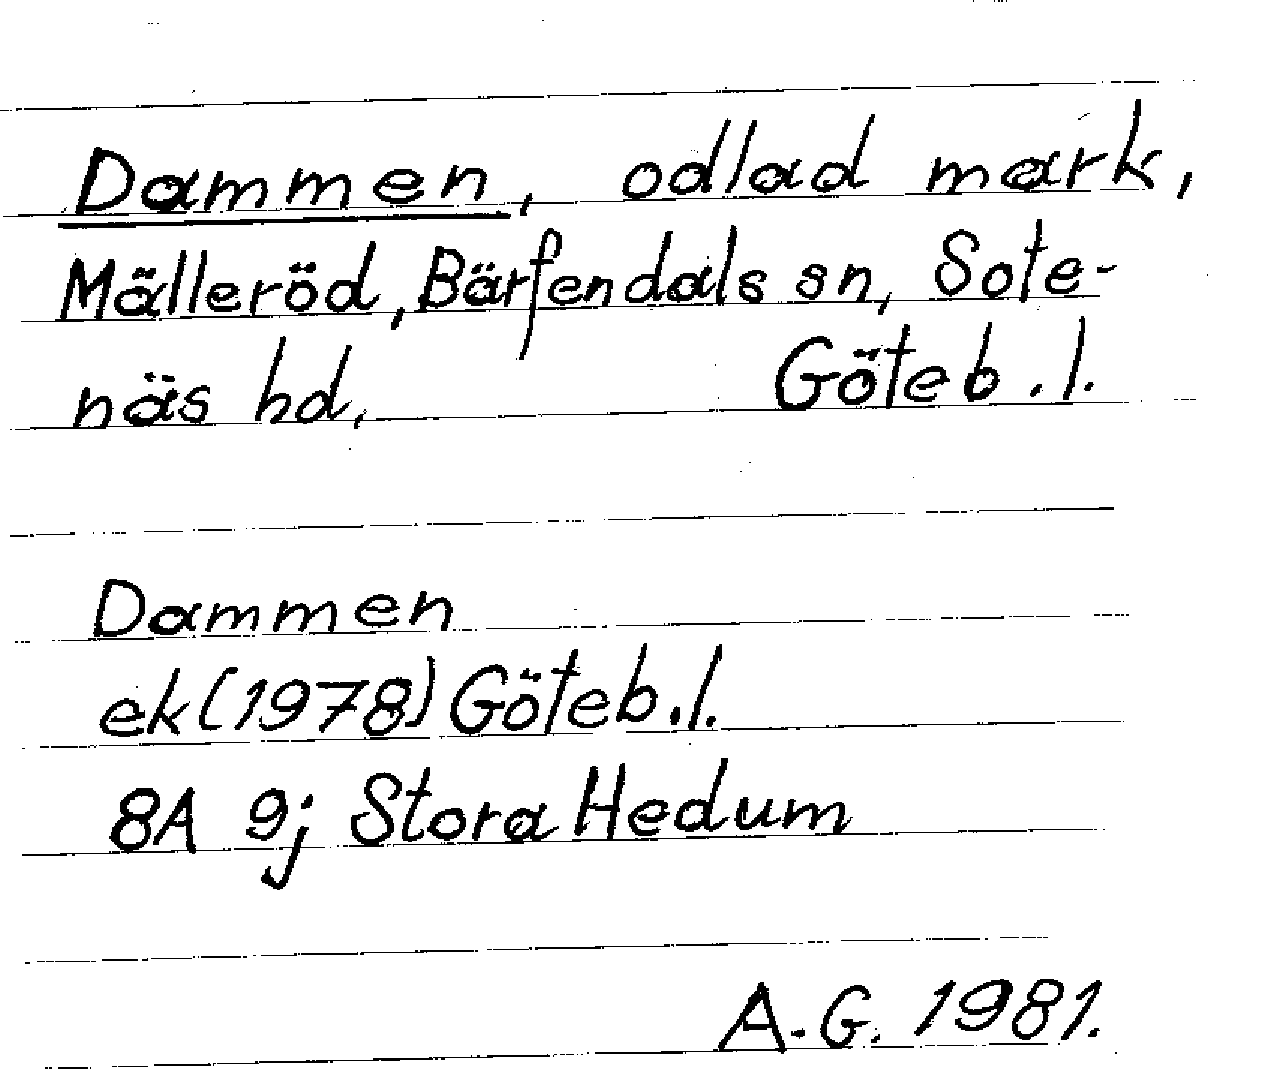 Dammen, odlad mark,
Mälleröd, Bärfendals sn, Sote-
näs hd, Göteb. l.
Dammen
ek (1978) Göteb. l.
8A 9j Stora Hedum
A.G. 1981.